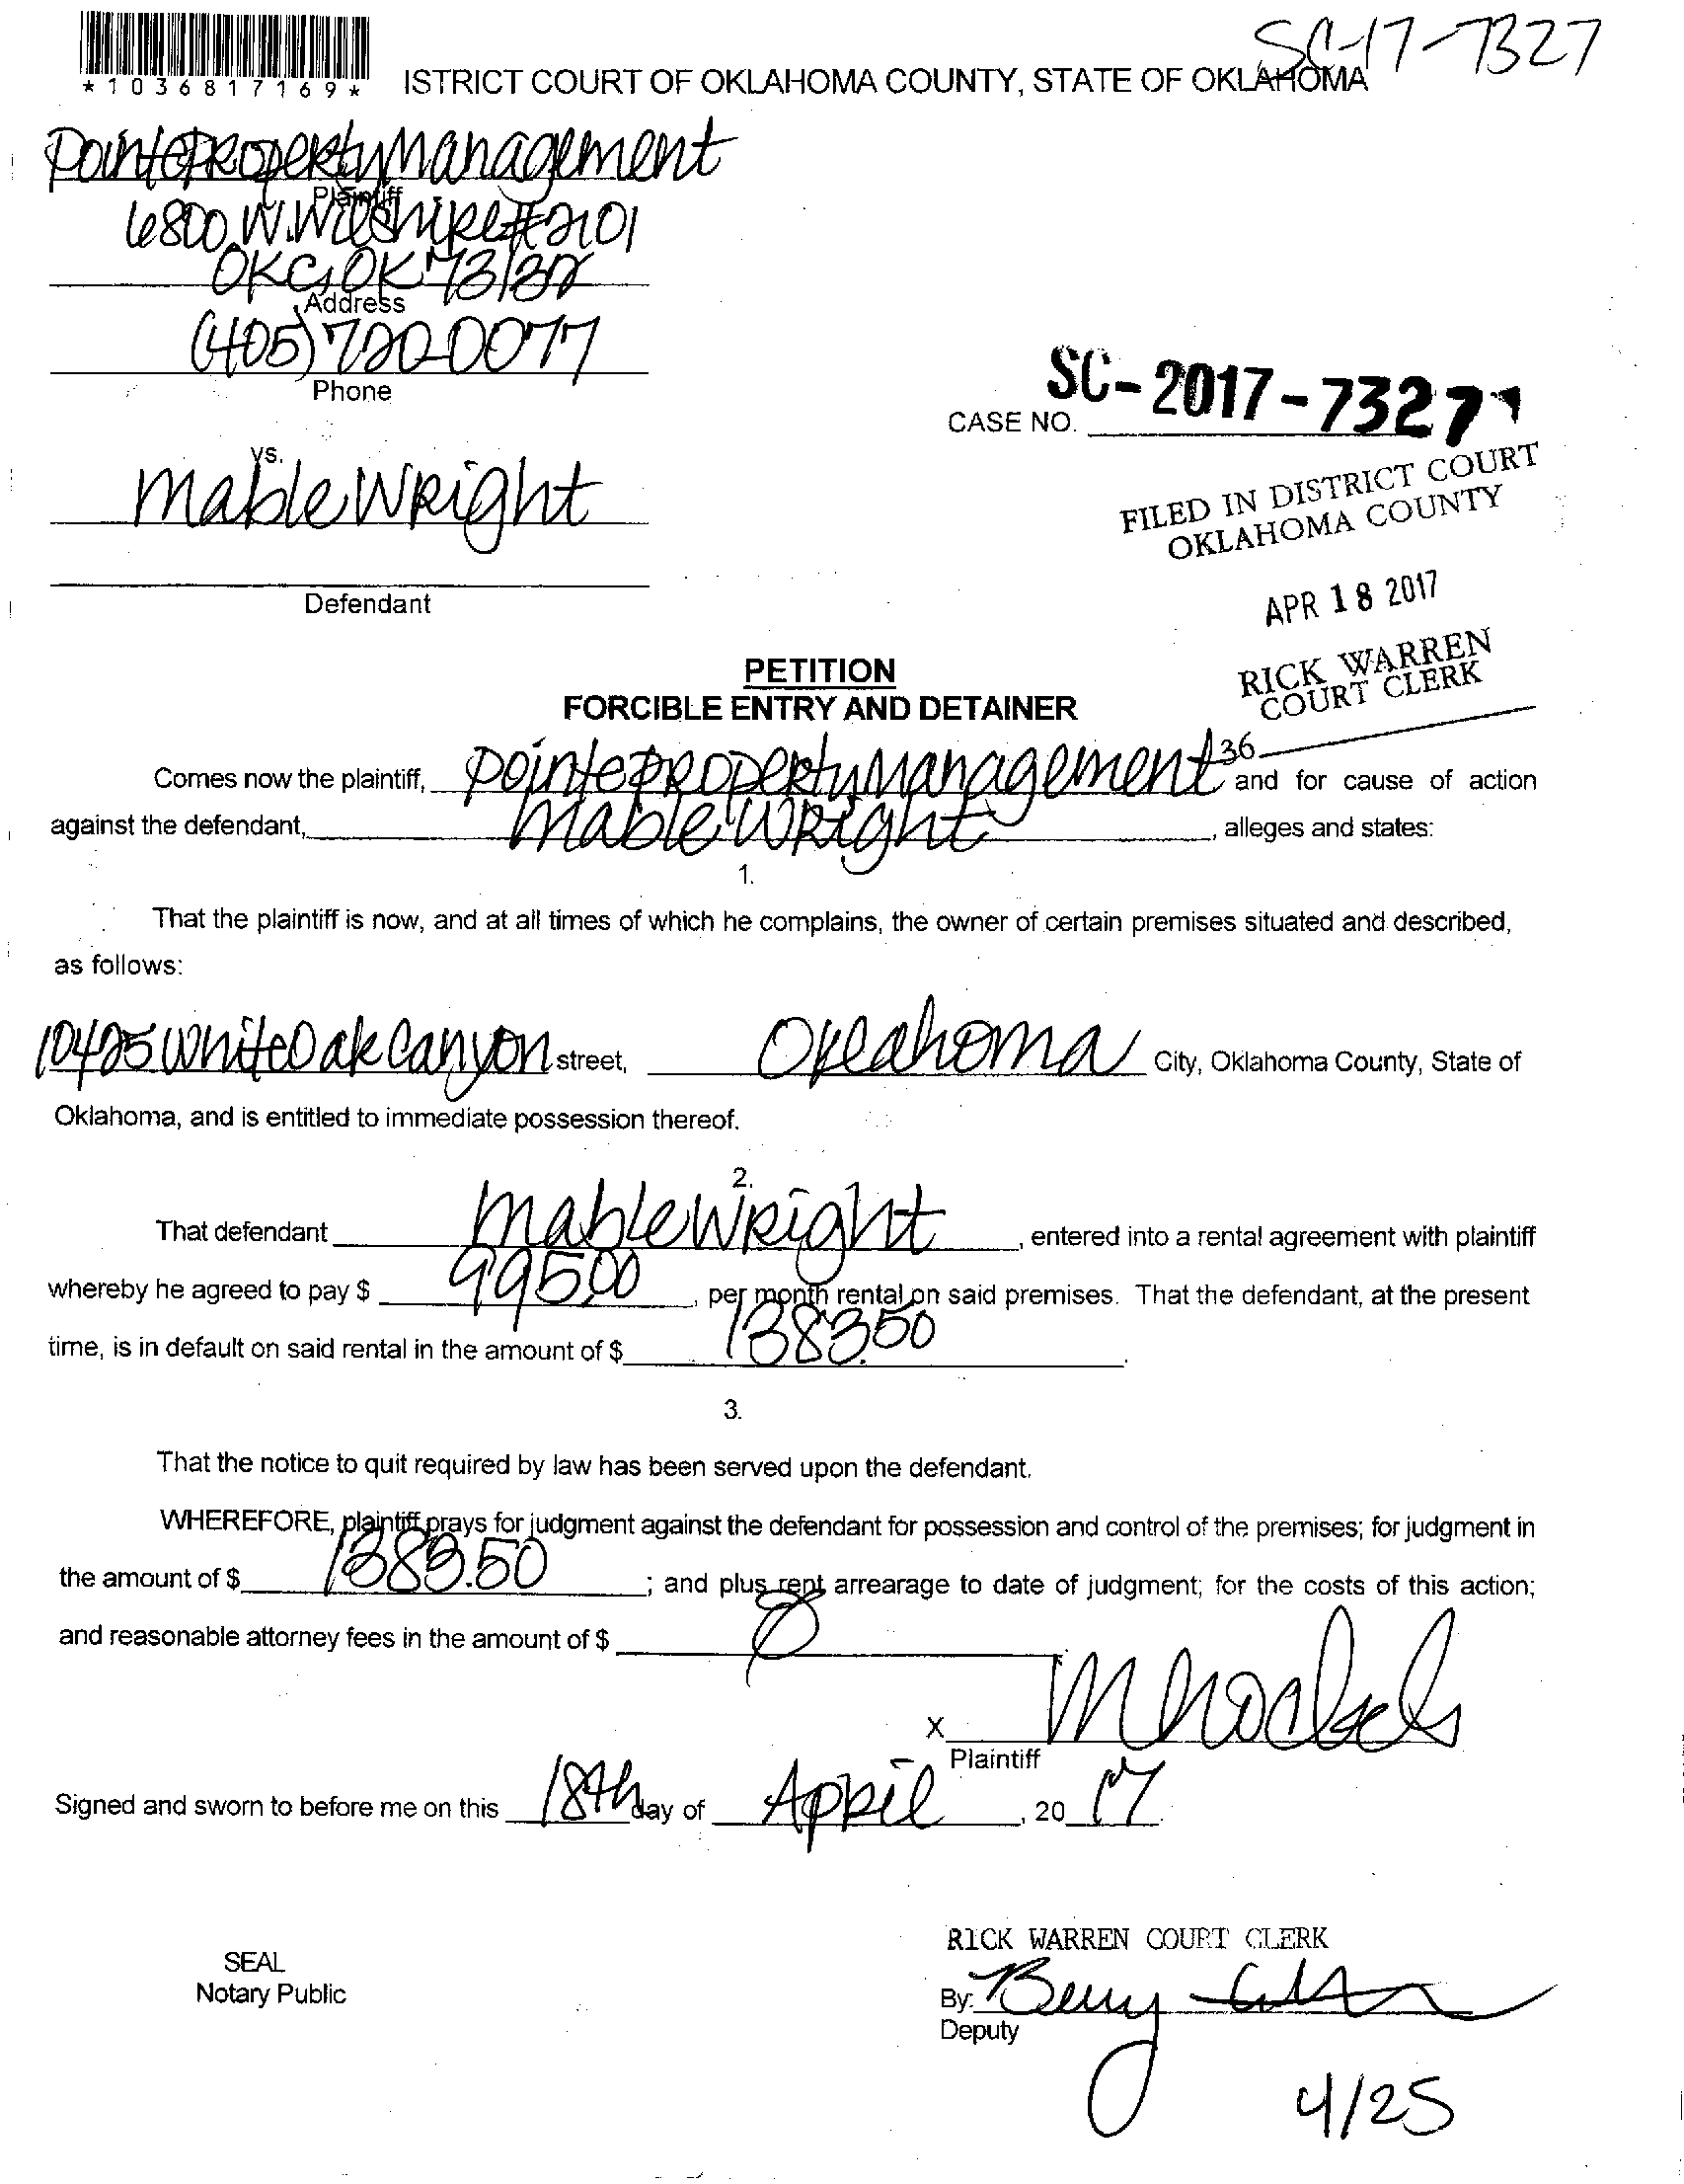 SC-17-7327
*1036817169*
ISTRICT COURT OF OKLAHOMA COUNTY, STATE OF OKLAHOMA
Pointe Property Management
Plaintiff
6800 W. Wilshire #2101
OKC, OK 73132
Address
(405) 720-0077
Phone
SC-2017-7327
CASE NO.
vs.
Mable Wright
FILED IN DISTRICT COURT
OKLAHOMA COUNTY
Defendant
APR 18 2017
RICK WARREN
COURT CLERK
36
PETITION
FORCIBLE ENTRY AND DETAINER
Comes now the plaintiff, Pointe Property Management and for cause of action
against the defendant, Mable Wright, alleges and states:
1.
That the plaintiff is now, and at all times of which he complains, the owner of certain premises situated and described,
as follows:
10425 White Oak Canyon street, Oklahoma City, Oklahoma County, State of
Oklahoma, and is entitled to immediate possession thereof.
2.
That defendant Mable Wright, entered into a rental agreement with plaintiff
whereby he agreed to pay $ 995.00, per month rental on said premises. That the defendant, at the present
time, is in default on said rental in the amount of $ 1383.50.
3.
That the notice to quit required by law has been served upon the defendant.
WHEREFORE, plaintiff prays for judgment against the defendant for possession and control of the premises; for judgment in
the amount of $ 1383.50; and plus rent arrearage to date of judgment; for the costs of this action;
and reasonable attorney fees in the amount of $ 0
X
Plaintiff
Signed and sworn to before me on this 18th day of April, 20 17
RICK WARREN COURT CLERK
SEAL
Notary Public
By:
Deputy
4/25